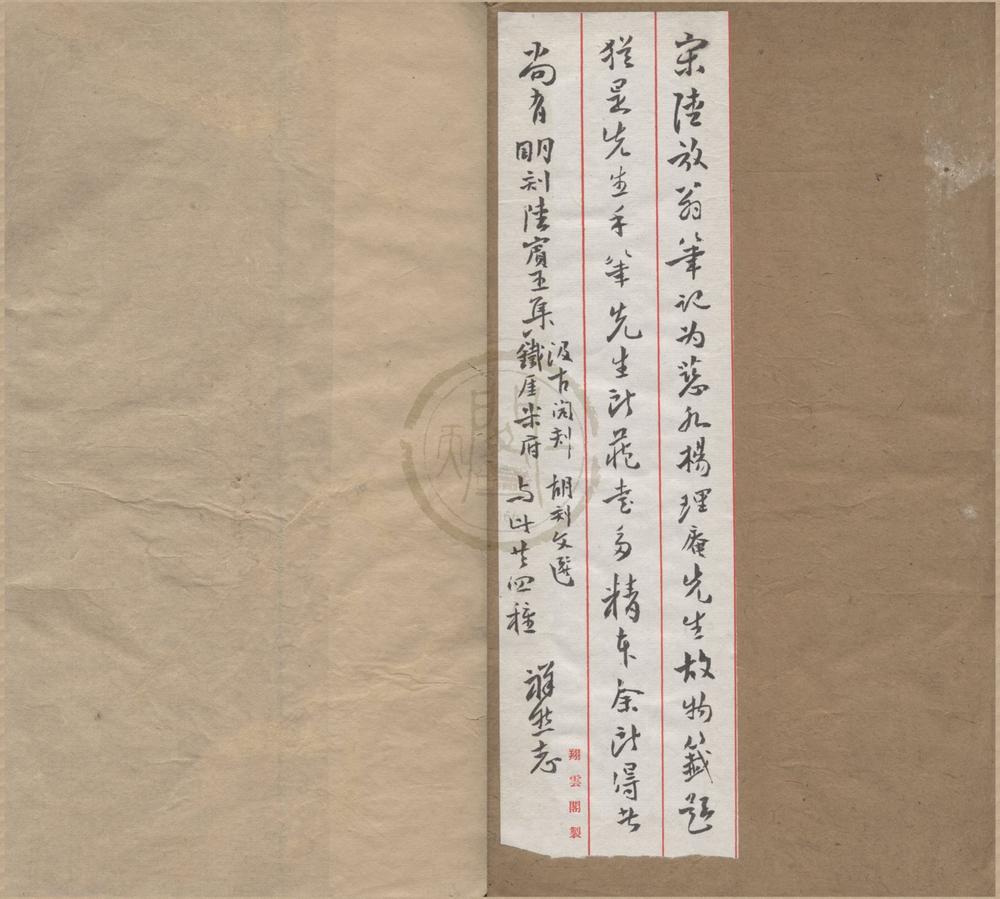 宋陸放翁筆記为慈水楊理庵先生故物籤題
犹是先生手筆先生所藏書多精本余所得者
尚有明刻陸賓王集
汲古阁刻 胡刻文選
鐵厓樂府 与此共四種
祥然志
翔雲閣製